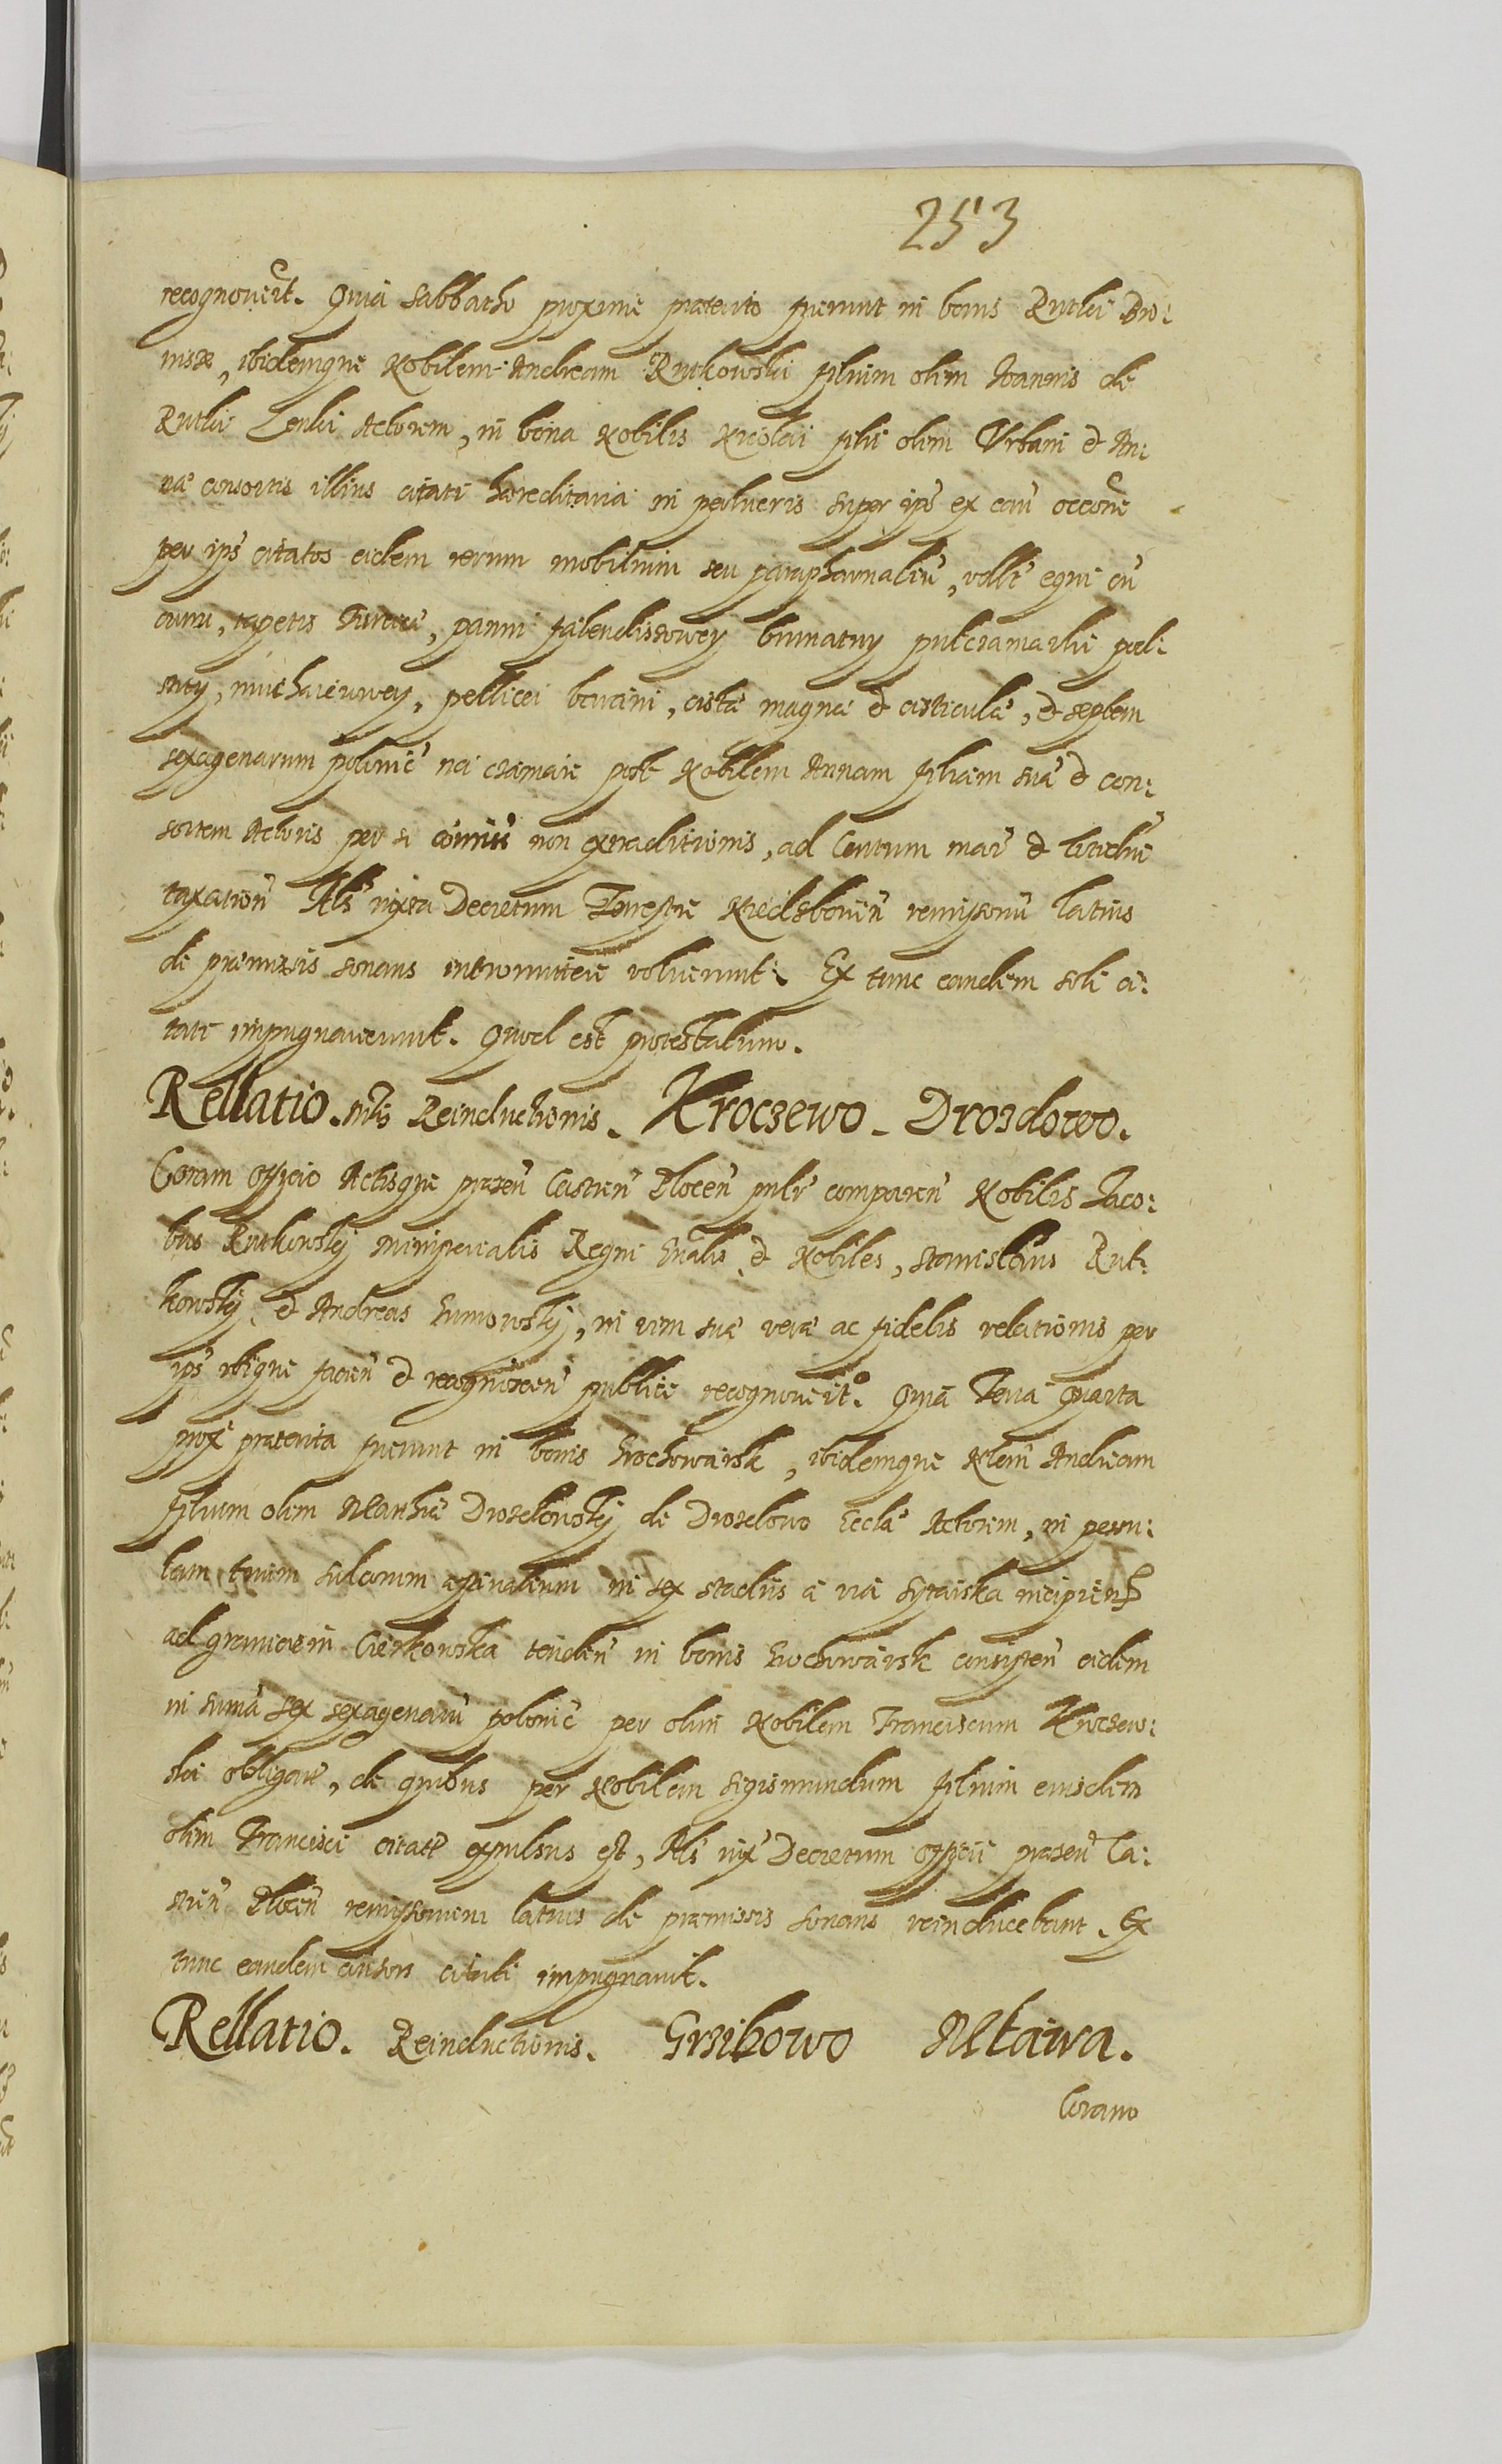 253
recognoverit. Quia Sabbatho proxime praeterito fuerunt in bonis Rutki Bro:
nisze, ibidemque Nobilem Andream Rutkowski filium olim Joannis de
Rutki Lenki Actorem, in bona Nobilis Nicolai filii olim Urbani et An:
nae consortis illius citati haereditaria in palueris super ips ex cau occone
per ips citatos eidem rerum mobilium seu paraphaernaliu, vdlt equi cu
curru, tapetis Turcica, panni falendissowey brunatny
muchaierowey, pellicei bovini, cista magna et cisticula, et septem
sexagenarum polonic na czamare post Nobilem Annam filiam sua et con:
sortem Actoris per se non extraditionis, ad Centum mar et totidue
taxation Als iuxta Decretum Terrestre Niedsboren remissoriu latius
de premissis sonans intromittere voluerunt. Ex tunc eandem soli ci:
tati impugnaverunt. Quod est protestatum.
Rellatio. Reinductionis. Kroczewo - Drozdowo.
Coram officio Actisque praesen Castren Plocen pnlr comparen Nobilis Jaco:
bus Rutkowskj ministerialis Regni gnalis et Nobiles, Stanislaus Rut:
kowskj et Andreas, in vim sua verae ac fidelis relationis per
ips ubique facien et recognoscen publice recognoverit. Quia Feria Quarta
prox praeterita fuerunt in bonis, ibidemque Nlem Andream
filium olim Mathiae Drozdowskj de Drozdowo Eccla Actorem, in pecu:
lam trium sulcorum in sex stadiis a via incipien
ad graniciem tenden in bonis consisten eidem
in suma sex sexagenaru polonic per olim Nobilem Franciscum Kroczew:
ski obligat, de quibus per Nobilem Sigismundum filium eiusdem
olim Francisci citatu expulsus est, Als iux Decretum officii praesen Ca:
stren Plocen remissorium latius de praemissis sonans reinducebant. Ex
tunc eandem consors citati impugnavit.
Rellatio. Reinductionis. Grzibowo Mlawa.
Coram